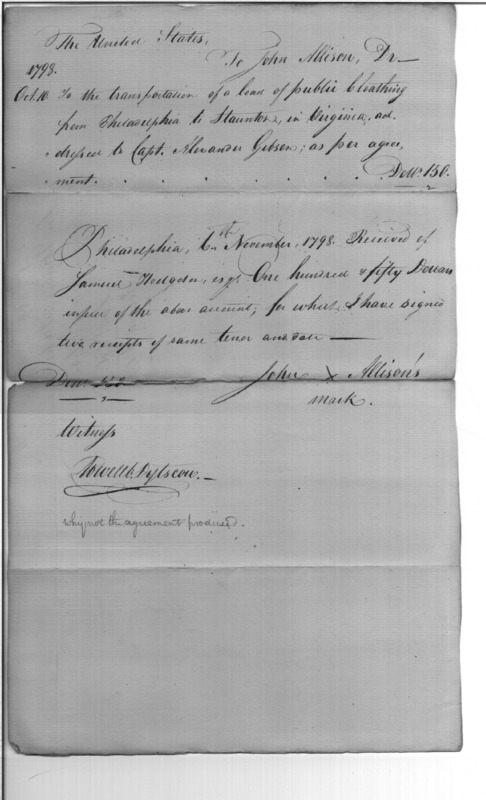 The United States,
To John Allison, Dr
1798.
Oct. 10. To the transportation of a load of public Cloathing
from Philadelphia to Staunton, in Virginia, ad-
dressed to Capt. Alexander Gibson; as per agree,
ment. . . . . . . Doll.s 150.
Philadelphia, November, 1798. Received of
Samuel Hodgdon, esqr. One hundred & fifty Dollars
in full of the above account; for which I have signed
two receipts of same tenor and date
John X Allison's
mark.
Witness
why not the agreement produced.